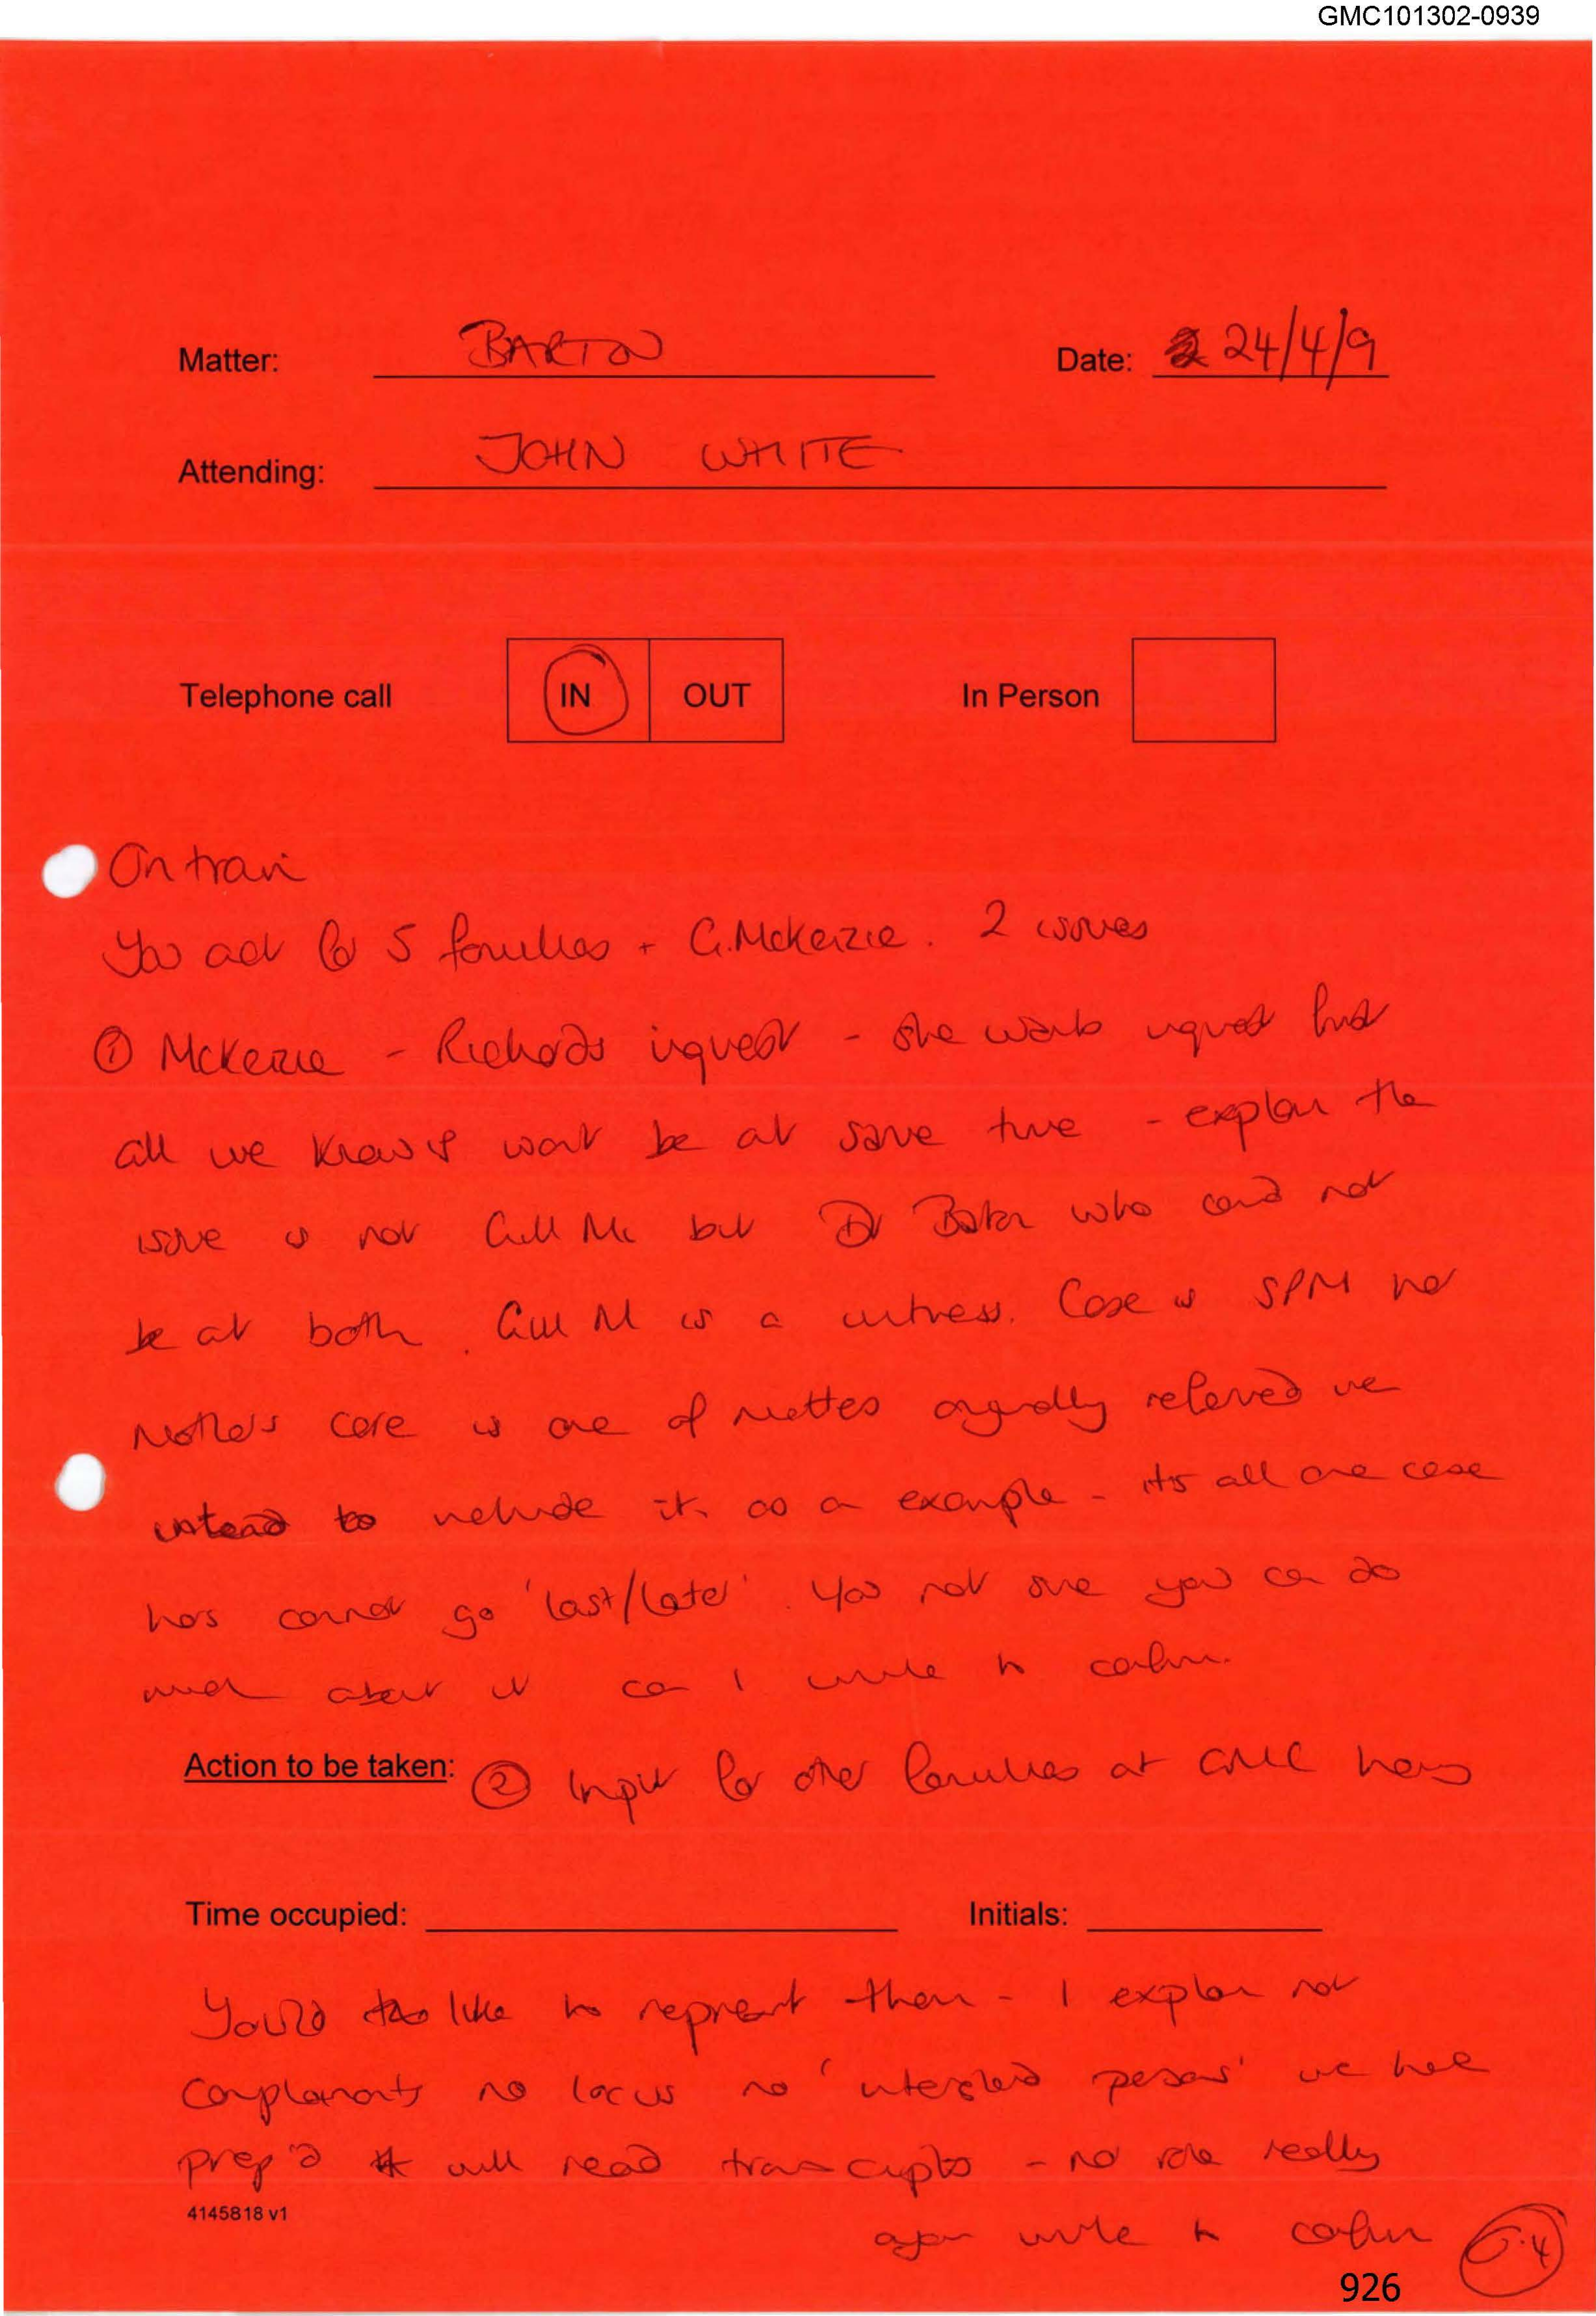 GMC101302-0939
Matter: BARTON Date: 24/4/9
Attending: JOHN WHITE
Telephone call IN OUT In Person
On train
You act for 5 families + G. McKenzie. 2 issues
① McKenzie - Richards inquest - she wants inquest first
all we know is wont be at same time - explain the
issue is not Gill Mc but Dr Barton who could not
be at both. Gill M is a witness. Case is SPM her
Mother's care is one of matters originally referred we
intend to include it as a example - its all one case
hers cannot go 'last/later'. You not sure you can do
much about it can I write to confirm.
Action to be taken: ② Input for other families at GMC hearing
Time occupied: Initials:
You'd like to represent them - I explain not
complainants no locus no 'interested persons' we have
prep'd will read transcripts - no role really
4145818 v1
again write to confirm
926